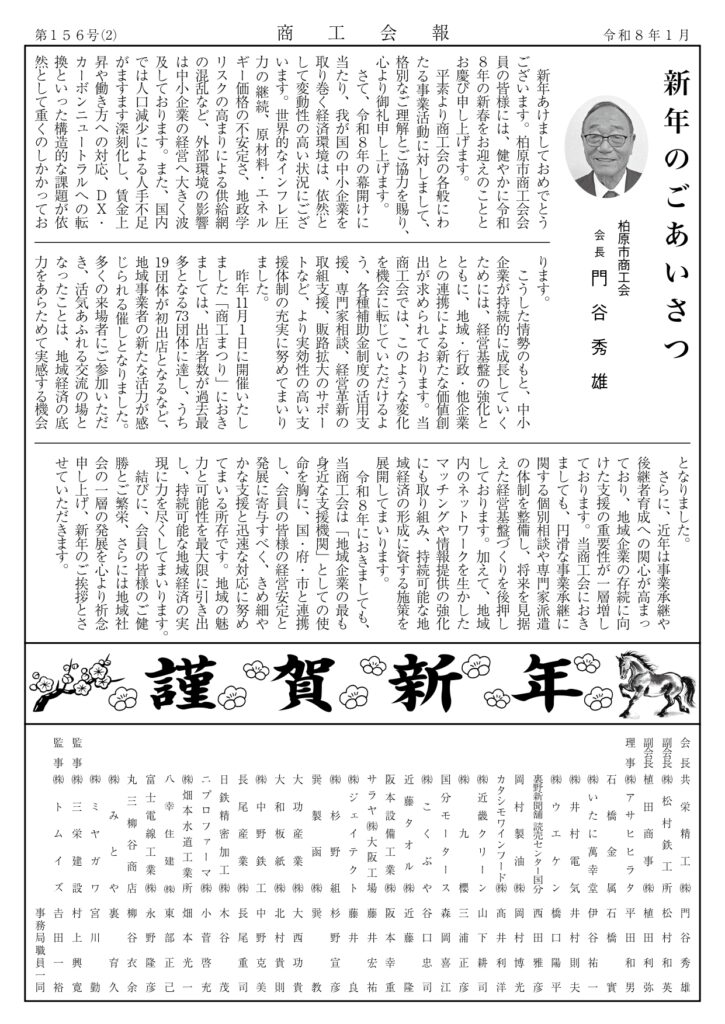 第１５６号(2)
商工会報
令和８年１月
新年のごあいさつ
柏原市商工会
会長　門谷秀雄
　新年あけましておめでとう
ございます。柏原市商工会会
員の皆様には、健やかに令和
８年の新春をお迎えのことと
お慶び申し上げます。
　平素より商工会の各般にわ
たる事業活動に対しまして、
格別なご理解とご協力を賜り、
心より御礼申し上げます。
　さて、令和８年の幕開けに
当たり、我が国の中小企業を
取り巻く経済環境は、依然と
して変動性の高い状況にござ
います。世界的なインフレ圧
力の継続、原材料・エネル
ギー価格の不安定さ、地政学
リスクの高まりによる供給網
の混乱など、外部環境の影響
は中小企業の経営へ大きく波
及しております。また、国内
では人口減少による人手不足
がますます深刻化し、賃金上
昇や働き方への対応、ＤＸ・
カーボンニュートラルへの転
換といった構造的な課題が依
然として重くのしかかってお
ります。
　こうした情勢のもと、中小
企業が持続的に成長していく
ためには、経営基盤の強化と
ともに、地域・行政・他企業
との連携による新たな価値創
出が求められております。当
商工会では、このような変化
を機会に転じていただけるよ
う、各種補助金制度の活用支
援、専門家相談、経営革新の
取組支援、販路拡大のサポー
トなど、より実効性の高い支
援体制の充実に努めてまいり
ました。
　昨年11月１日に開催いたし
ました「商工まつり」におき
ましては、出店者数が過去最
多となる73団体に達し、うち
19団体が初出店となるなど、
地域事業者の新たな活力が感
じられる催しとなりました。
多くの来場者にご参加いただ
き、活気あふれる交流の場と
なったことは、地域経済の底
力をあらためて実感する機会
となりました。
　さらに、近年は事業承継や
後継者育成への関心が高まっ
ており、地域企業の存続に向
けた支援の重要性が一層増し
ております。当商工会におき
ましても、円滑な事業承継に
関する個別相談や専門家派遣
の体制を整備し、将来を見据
えた経営基盤づくりを後押し
しております。加えて、地域
内のネットワークを生かした
マッチングや情報提供の強化
にも取り組み、持続可能な地
域経済の形成に資する施策を
展開してまいります。
　令和８年におきましても、
当商工会は「地域企業の最も
身近な支援機関」としての使
命を胸に、国・府・市と連携
し、会員の皆様の経営安定と
発展に寄与すべく、きめ細や
かな支援と迅速な対応に努め
てまいる所存です。地域の魅
力と可能性を最大限に引き出
し、持続可能な地域経済の実
現に力を尽くしてまいります。
　結びに、会員の皆様のご健
勝とご繁栄、さらには地域社
会の一層の発展を心より祈念
申し上げ、新年のご挨拶とさ
せていただきます。
謹賀新年
会長　共栄精工㈱　門谷秀雄
副会長　㈱松村鉄工所　松村和英
副会長　植田商事㈱　植田利弥
理事　㈱アサヒヒラタ　平田和男
石橋金属　石橋實
㈱いたに萬幸堂　伊谷祐一
㈱井村電気　井村則夫
㈱ウエケン　橋口陽平
裏野新聞舗 読売センター国分　西田雅彦
岡村製油㈱　岡村博光
カタシモワインフード㈱　髙井利洋
㈱近畿クリーン　山下耕司
㈱九櫻　三浦正彦
国分モータース　森岡喜江
㈱こくぶや　谷口忠司
近藤タオル㈱　近藤隆
阪本設備工業㈱　阪本幸重
サラヤ㈱大阪工場　藤井宏祐
㈱ジェイテクト　藤井良
㈱杉野組　杉野宣彦
巽製函㈱　巽教
大功産業㈱　大西功貴
大和板紙㈱　北村貴則
㈱中野鉄工　中野克美
長尾産業㈱　長尾重司
日鉄精密加工㈱　木谷茂
ニプロファーマ㈱　小菅啓充
㈱畑本水道工業所　畑本光一
八幸住建㈱　東部正己
富士電線工業㈱　永野隆彦
丸三柳谷商店　柳谷衣余
㈱みとや　裏育久
㈱ミヤガワ　宮川勤
監事　㈱三栄建設　村上興寛
監事　㈱トムイズ　吉田一裕
事務局職員一同